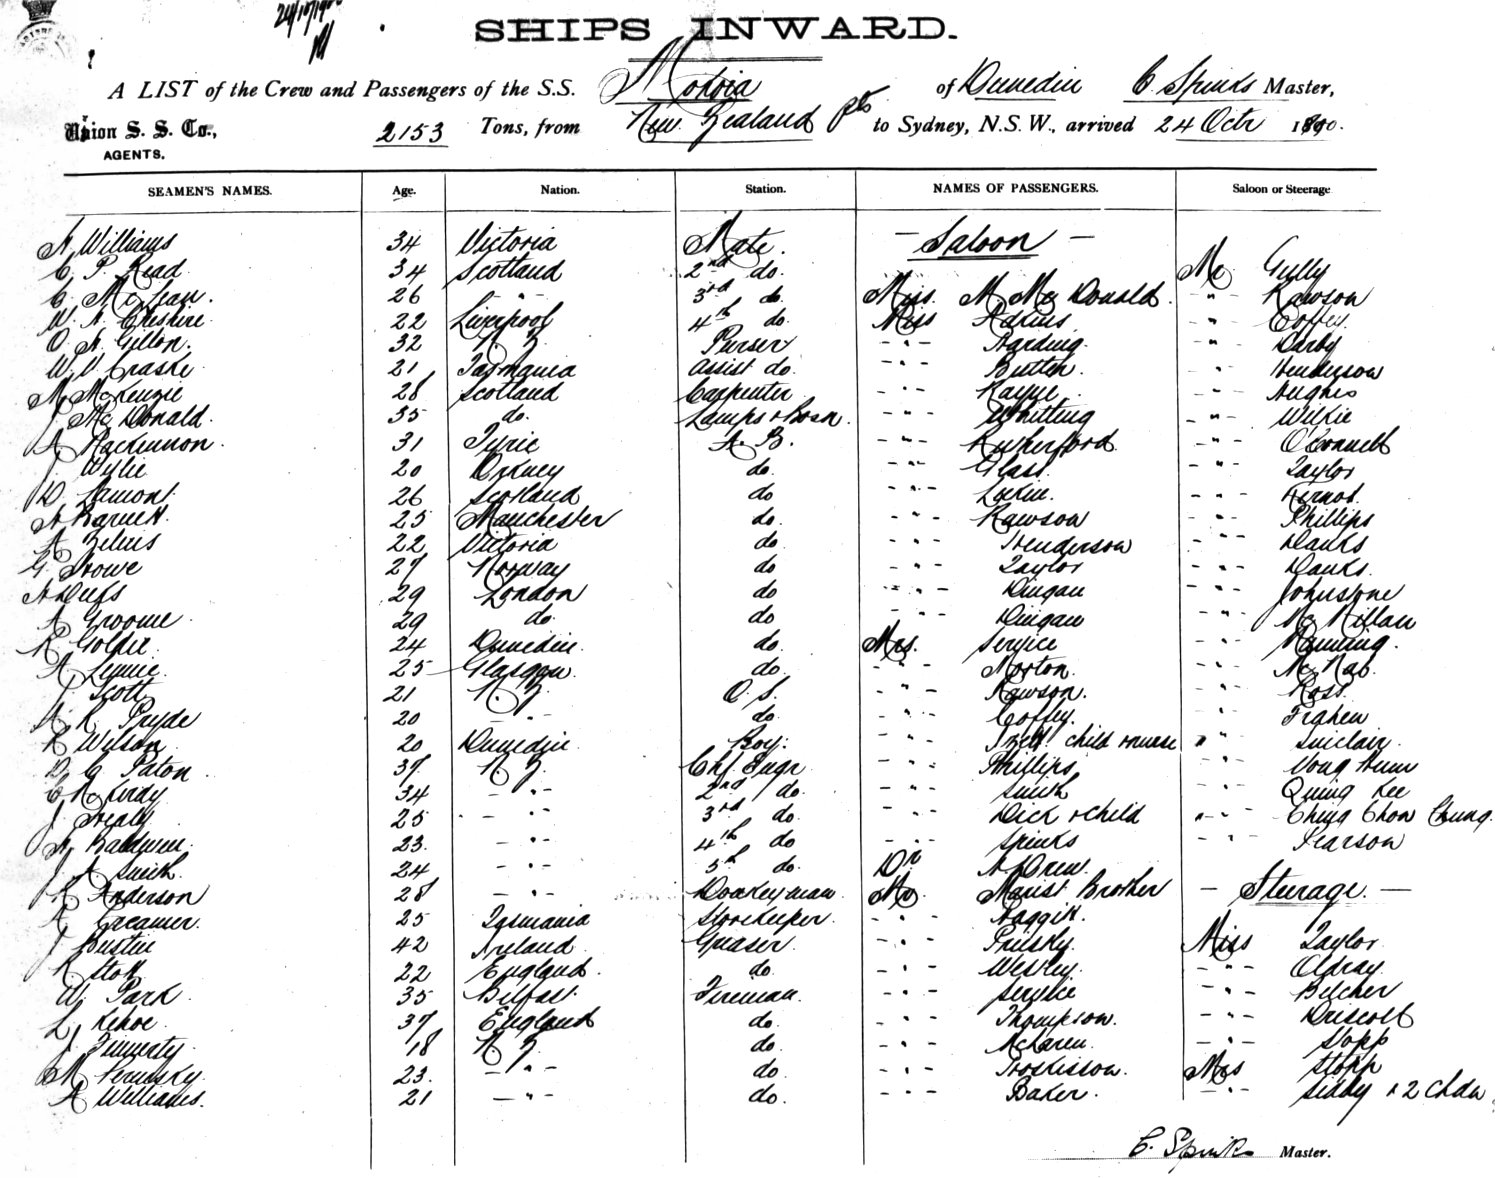 24/10/1900
SHIPS INWARD.
A LIST of the Crew and Passengers of the S.S. Mokoia of Dunedin C. Spinks Master,
Union S. S. Co., 2153 Tons, from New Zealand Pts to Sydney, N.S.W., arrived 24 Octr 1900.
AGENTS.
SEAMEN'S NAMES. Age. Nation. Station. NAMES OF PASSENGERS. Saloon or Steerage
A Williams 34 Victoria Mate. - Saloon -
C. P. Read 34 Scotland 2nd do. Mr Gully
C. McLean. 26 - " - 3rd do. Miss. M. McDonald. - " - Rawson
W. A. Cheshire. 22 Liverpool 4th do. Miss Adkins - " - Coffey.
O. A. Gillon. 32 N Z Purser - " - Harding. - " - Darby
W. V. Craske 21 Tasmania assist do. - " - - " - Henderson
M McKenzie 28 Scotland Carpenter - " - Kayye - " - Hughes
J McDonald. 35 do. Lamps & Bosn. - " - Whitting - " - Wilkie
A Mackinnon. 31 Tyrie A. B. - " - Rutherford - " - O'Connell
J Wylie 20 Orkney do. - " - Glass. - " - Taylor
D. Lamont. 26 Scotland do - " - - " -
A Barnett. 25 Manchester do. - " - Rawson - " - Phillips
A 22 Victoria do - " - Henderson - " - Danks
G. Stowe 27 Norway do. - " - Taylor - " - Danks.
A 29 London do - " - Dingan - " - Johnstone
A Groome 29 do. do - " - Dingan - " - McMillan
R Goldie. 24 Dunedin. do. Mrs. Service - " - Manning.
A Lennie. 25 Glasgow do. - " - Morton. - " - McNab.
J Scott 21 N. Z. O S. - " - Rawson. - " - Ross.
A. K Pryde 20 - " - do. - " - Coffey. - " -
R Wilson 20 Dunedin. Boy. - " - child & nurse " - Sinclair.
D. C. Paton. 37 N Z Chf. Engr - " - Phillips - " -
C McKirdy 34 - " - 2nd do. - " - Smith - " - Quing Kee
J. Healy 25 - " - 3rd do. - " - Dick & child - " - Ching Chow Chung.
A. Baldwin. 23. - " - 4th do - " - Spinks - " - Pearson
J. A Smith. 24 - " - 5th do. Dr A Drew.
R Anderson 28 - " - Donkeyman. Mr. Marist Brother - Steerage. -
A Creamer. 25 Tasmania Storekeeper. - " - Haggitt.
J Bustin 42 Ireland Greaser. - " - Miss Taylor
R Stott 22 England. do. - " - Wesley. - " - Oldray.
W. Park. 35 Belfast. Fireman. - " - Service - " - Belcher
L. Kehoe. 37 England do. - " - Thompson. - " - Driscoll
J. Finnerty. 18 N Z do. - " - McLaren. - " - Stopp
M 23. - " - do. - " - Mrs Stopp
A Williams. 21 - " - do. - " - Baker. - " - Siddy & 2 Chdn
C. Spinks Master.